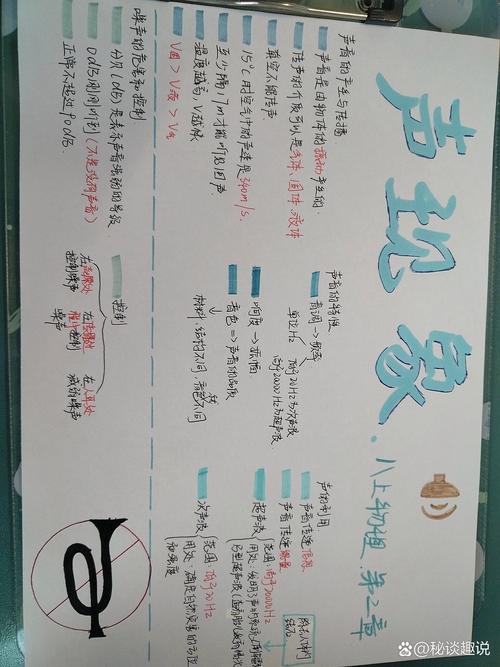 声现象
八上物理.第2章
声音的产生与传播
声音是由物体的振动产生的.
传声的介质可以是气体、固体、液体
真空不能传声.
15℃时空气中的声速是340m/s.
至少隔17m才能听见回声
温度越高,V越快
V固>V液>V气
声音的特性
音调→频率
单位Hz
低于20Hz为次声波
高于20000Hz为超声波
响度→振幅
音色⇒声音的品质
材料、结构不同 音色不同
声的利用
声音传递信息
声音传递能量
超声波
范围:高于20000Hz
次声波
范围:低于20Hz
噪声的危害和控制
分贝(dB)是表示声音强弱的等级
0dB刚刚听到(不是没有声音)
正常不超过90dB.
控制
在声源处
控制噪声
噪声
在人耳处
减弱噪声
@秘谈趣说